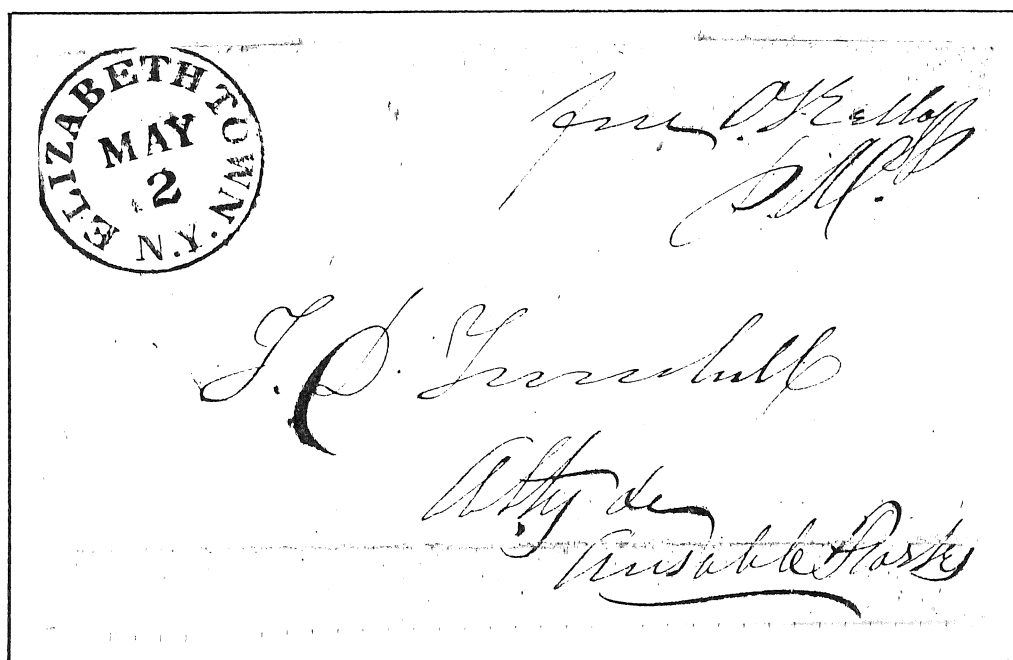 ELIZABETH TOWN. N.Y.
MAY
2
free O. Kellogg
P.M.
T. D. Trumbull
Atty &c
Ausable Forks